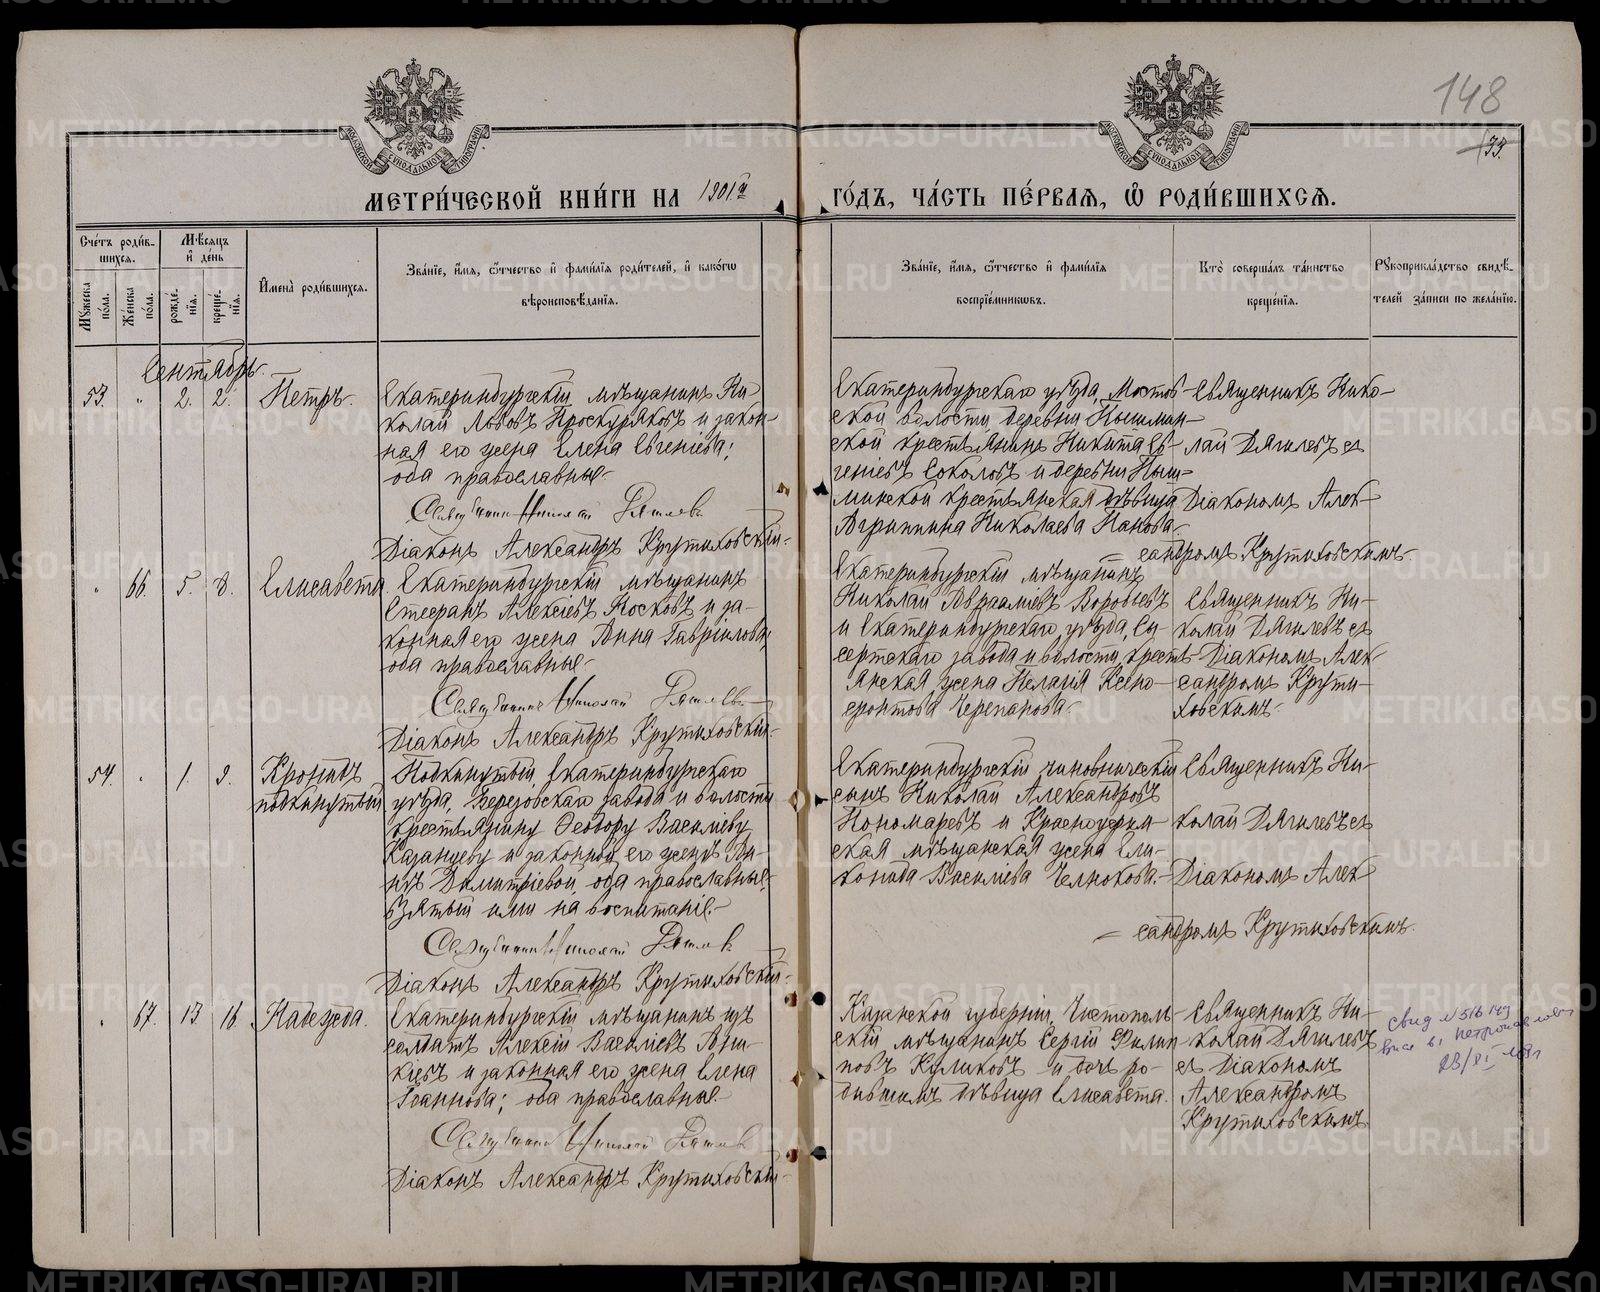 148
73.
МЕТРИ́ЧЕСКОЙ КНИ́ГИ НА 1901й ГО́ДЪ, ЧА́СТЬ ПЕ́РВАЯ, Ѽ РОДИ́ВШИХСЯ.
Сче́тъ роди́в-
шихся.
Мꙋжеска по́ла.
Же́нска по́ла.
Мѣ́сяцъ
и҆ де́нь
рожде́-
нїя.
креще́-
нїя.
И҆мена̀ роди́вшихся.
Зва́нїе, и҆́мя, ѻ҆́тчество и҆ фами́лїя роди́телей, и҆ како́гѡ
вѣроисповѣ́данїя.
Зва́нїе, и҆́мя, ѻ҆́тчество и҆ фами́лїя
воспрїе́мникѡвъ.
Кто̀ соверша́лъ та́инство
креще́нїя.
Рꙋкоприкла́дство свидѣ́-
телей за́писи по жела́нїю.
Сентябрь.
53. " 2. 2. Петръ.
Екатеринбургскій мѣщанинъ Ни-
колай Львовъ Проскуряковъ и закон-
ная его жена Елена Евгеніева;
оба православные.
Священникъ Николай Дягилевъ
Діаконъ Александръ Крутиховскій.
Екатеринбургскаго уѣзда, Мостов-
ской волости деревни Пышмин-
ской крестьянинъ Никита Ев-
геніевъ Соколовъ и деревни Пыш-
минской крестьянская дѣвица
Агриппина Николаева Панова.
Священникъ Нико-
лай Дягилевъ съ
Діакономъ Алек-
сандромъ Крутиховскимъ.
" 66. 5. 8. Елисавета.
Екатеринбургскій мѣщанинъ
Стефанъ Алексіевъ Носковъ и за-
конная его жена Анна Гавріилова;
оба православные.
Священникъ Николай Дягилевъ
Діаконъ Александръ Крутиховскій.
Екатеринбургскій мѣщанинъ
Николай Авраамиевъ Воробьевъ
и Екатеринбургскаго уѣзда, Сы-
сертскаго завода и волости, кресть-
янская жена Пелагія Ксено-
фонтова Черепанова.
Священникъ Ни-
колай Дягилевъ съ
Діакономъ Алек-
сандромъ Крути-
ховскимъ.
54. " 1. 9. Кронидъ
подкинутый
Подкинутый Екатеринбургскаго
уѣзда, Березовскаго завода и волости
крестьянину Ѳеодору Василіеву
Казанцеву и законной его женѣ Ан-
нѣ Димитріевой, оба православные,
взятый ими на воспитаніе.
Священникъ Николай Дягилевъ
Діаконъ Александръ Крутиховскій.
Екатеринбургскій чиновническій
сынъ Николай Александровъ
Пономаревъ и Красноуфим-
ская мѣщанская жена Ели-
конида Василіева Челнокова.
Священникъ Ни-
колай Дягилевъ съ
Діакономъ Алек-
сандромъ Крутиховскимъ.
" 67. 13. 16. Надежда.
Екатеринбургскій мѣщанинъ изъ
солдатъ Алексій Василіевъ Ани-
кіевъ и законная его жена Елена
Іоаннова; оба православные.
Священникъ Николай Дягилевъ
Діаконъ Александръ Крутиховскій.
Казанской губерніи, Чистополь-
скій мѣщанинъ Сергій Филип-
повъ Куликовъ и дочь ро-
дившимъ дѣвица Елисавета.
Священникъ Ни-
колай Дягилевъ
съ Діакономъ
Александромъ
Крутиховскимъ
свид №516149
METRIKI.GASO-URAL.RU